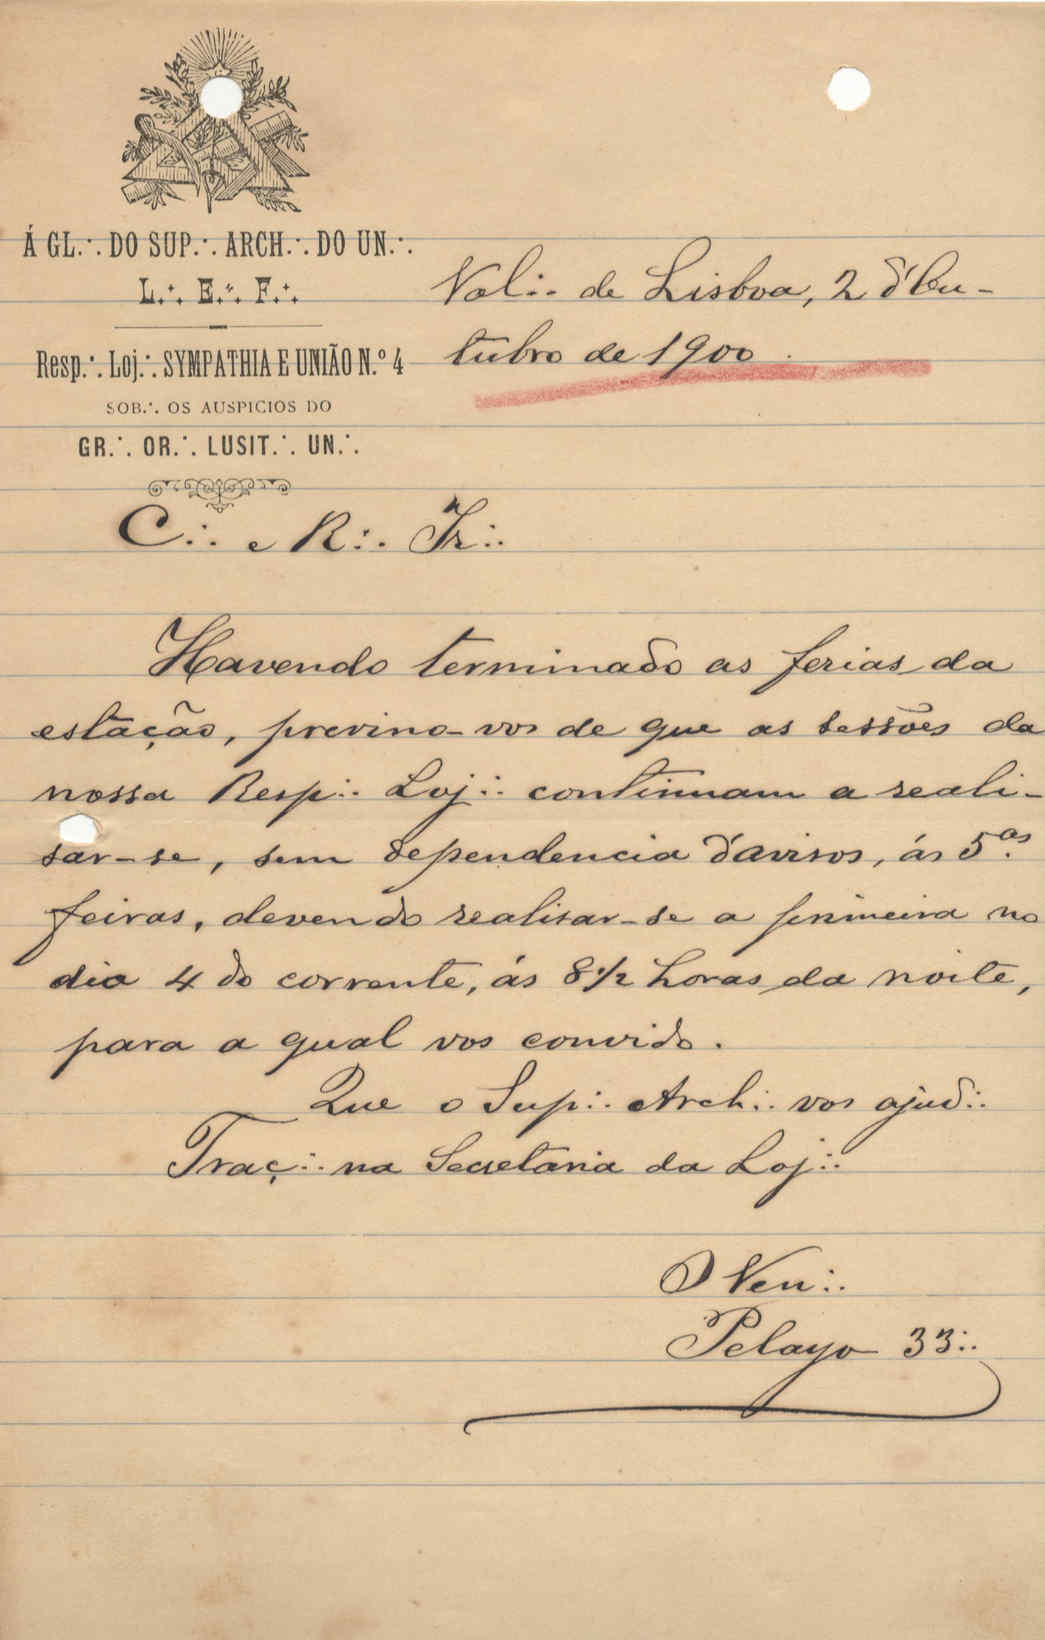 Á GL.·. DO SUP.·. ARCH.·. DO UN.·.
L.·. E.·. F.·.
Resp.·. Loj.·. SYMPATHIA E UNIÃO N.º 4
SOB.·. OS AUSPICIOS DO
GR.·. OR.·. LUSIT.·. UN.·.
Val.·. de Lisboa, 2 d'Ou-
tubro de 1900.
C.·. e R.·. Ir.·.
Havendo terminado as ferias da
estação, previno-vos de que as sessões da
nossa Resp.·. Loj.·. continuam a reali-
sar-se, sem dependencia d'avisos, ás 5.as
feiras, devendo realisar-se a primeira no
dia 4 do corrente, ás 8 1/2 horas da noite,
para a qual vos convido.
Que o Sup.·. Arch.·. vos ajud.·.
Traç.·. na Secretaria da Loj.·.
O Ven.·.
Pelayo 33.·.